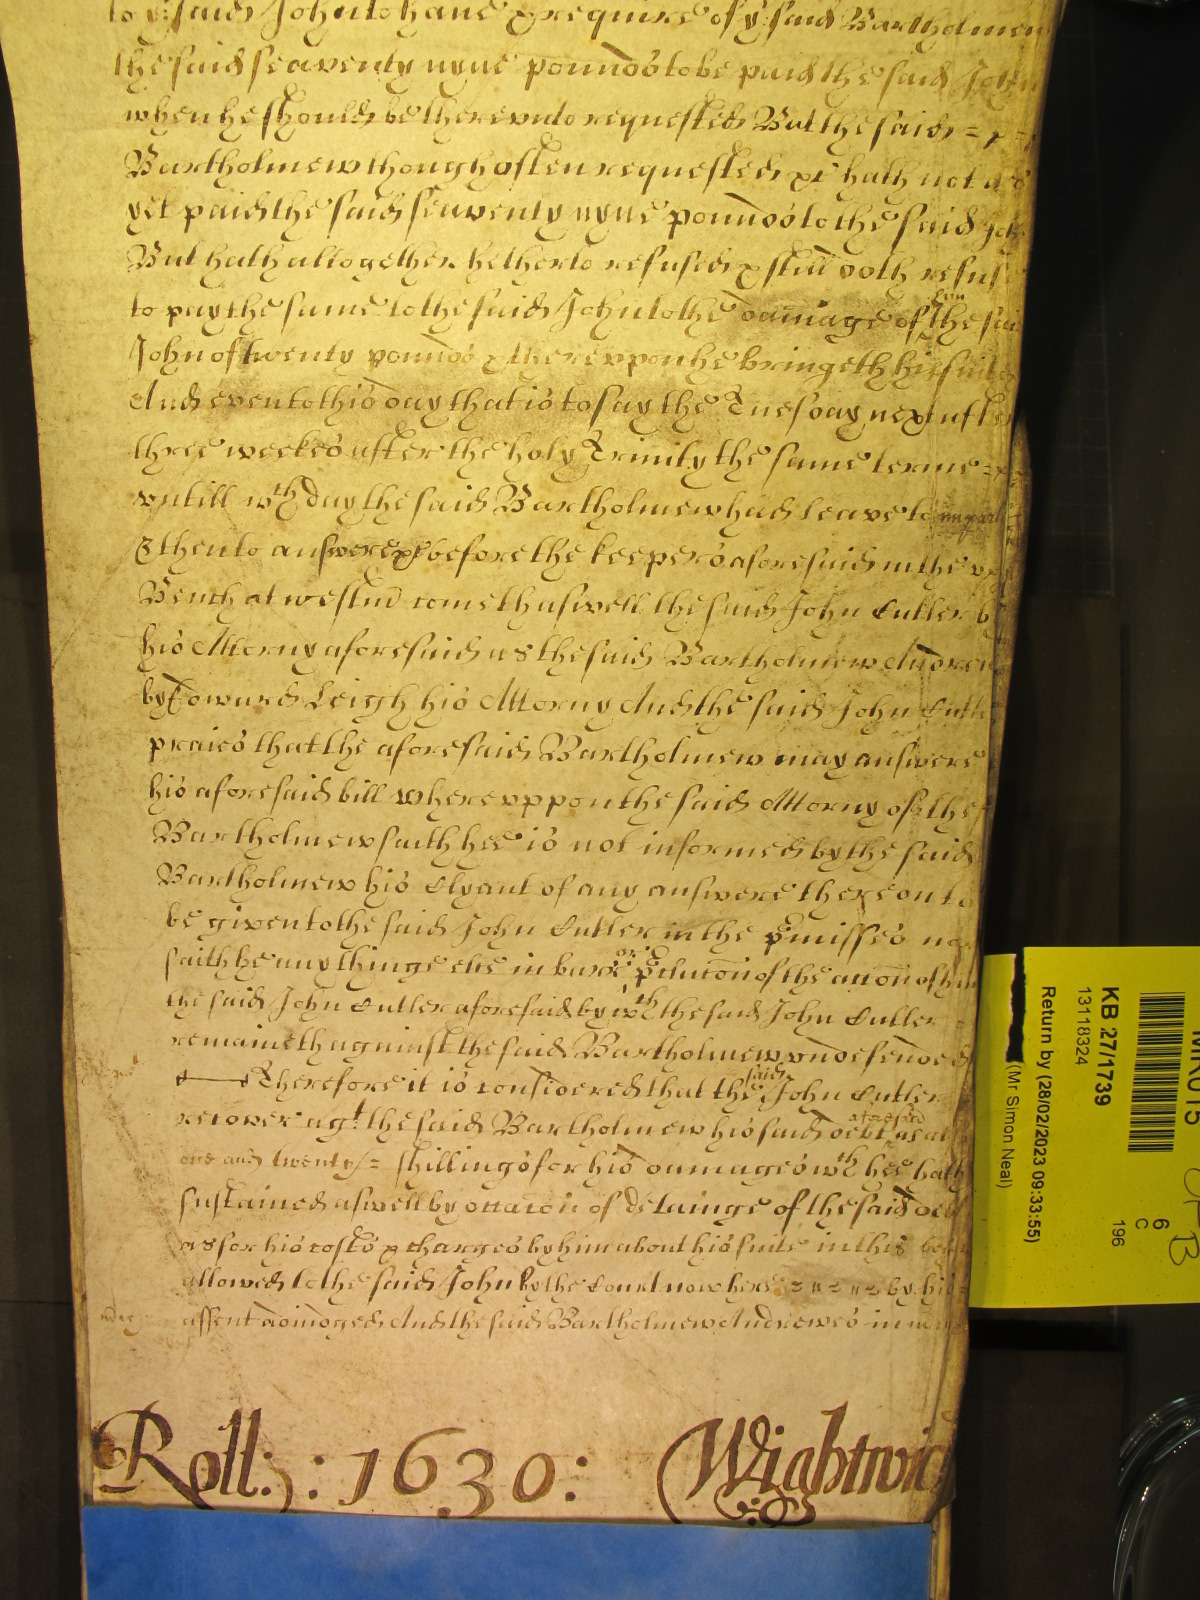 to y:e said John to have & require of y:e said Bartholmew
the said seaventy nyne pounds to be paid the said John
when he should be thereunto requested But the said =
Bartholmew though often requested &c hath not as
yet paid the said seaventy nyne pounds to the said John
But hath altogether hetherto refused & still doth refus
to pay the same to the said John to the damage of the said
John of twenty pounds & thereuppon he bringeth his suite
And even to this day that is to say the Tuesday next after
three weekes after the holy Trinity the same terme =
untill wth day the said Bartholmew had leave to imparl
& then to answere &c before the keepers aforesaid in the upp
Bench at westmr cometh aswell the said John Cutler by
his Attorny aforesaid as the said Bartholmew Andrew
by Edward Leigh his Attorny And the said John Cutler
praies that the aforesaid Bartholmew may answere
his aforesaid bill whereuppon the said Attorny of the s
Bartholmew saith hee is not informed by the said
Bartholmew his Clyant of any answere thereon to
be given to the said John Cutler in the pmisses nor
saith he any thinge els in barr or pclucion of the accon of him
the said John Cutler aforesaid by wth the said John Cutler
remaineth against the said Bartholmew undefended
Therefore it is considered that the said John Cutler
recover agt the said Bartholmew his said debt aforesaid as al
one and twenty = shillings for his damages wch hee hath
sustained aswell by occacon of detainge of the said deb
as for his costs & charges by him about his suite in this be
allowed to the said John by the Court now here by his
assent adiudged And the said Bartholmew Andrewes in m
Roll: : 1630: Wightwic
KB 27/1739
13118324
Return by (28/02/2023 09:33:55)
(Mr Simon Neal)
6
C
196